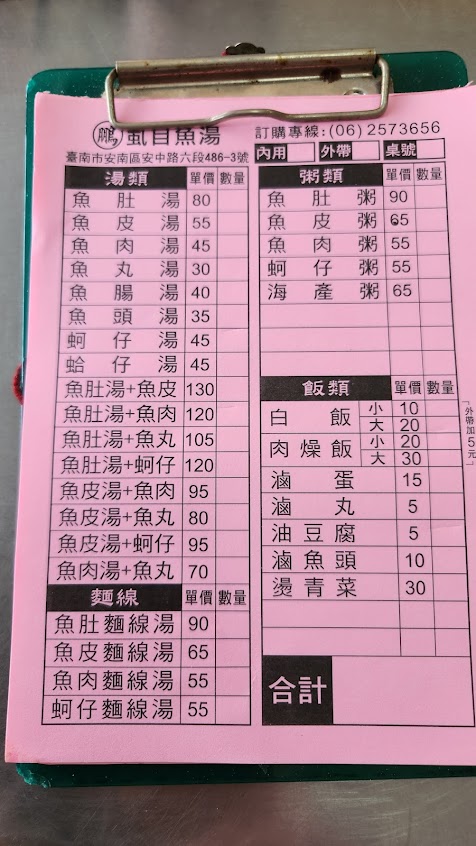 鵬 虱目魚湯
訂購專線:(06)2573656
臺南市安南區安中路六段486-3號
內用 外帶 桌號
湯類 單價 數量
魚肚湯 80
魚皮湯 55
魚肉湯 45
魚丸湯 30
魚腸湯 40
魚頭湯 35
蚵仔湯 45
蛤仔湯 45
魚肚湯+魚皮 130
魚肚湯+魚肉 120
魚肚湯+魚丸 105
魚肚湯+蚵仔 120
魚皮湯+魚肉 95
魚皮湯+魚丸 80
魚皮湯+蚵仔 95
魚肉湯+魚丸 70
麵線 單價 數量
魚肚麵線湯 90
魚皮麵線湯 65
魚肉麵線湯 55
蚵仔麵線湯 55
粥類 單價 數量
魚肚粥 90
魚皮粥 65
魚肉粥 55
蚵仔粥 55
海產粥 65
飯類 單價 數量
白飯 小 10
大 20
肉燥飯 小 20
大 30
「外帶加5元」
滷蛋 15
滷丸 5
油豆腐 5
滷魚頭 10
燙青菜 30
合計